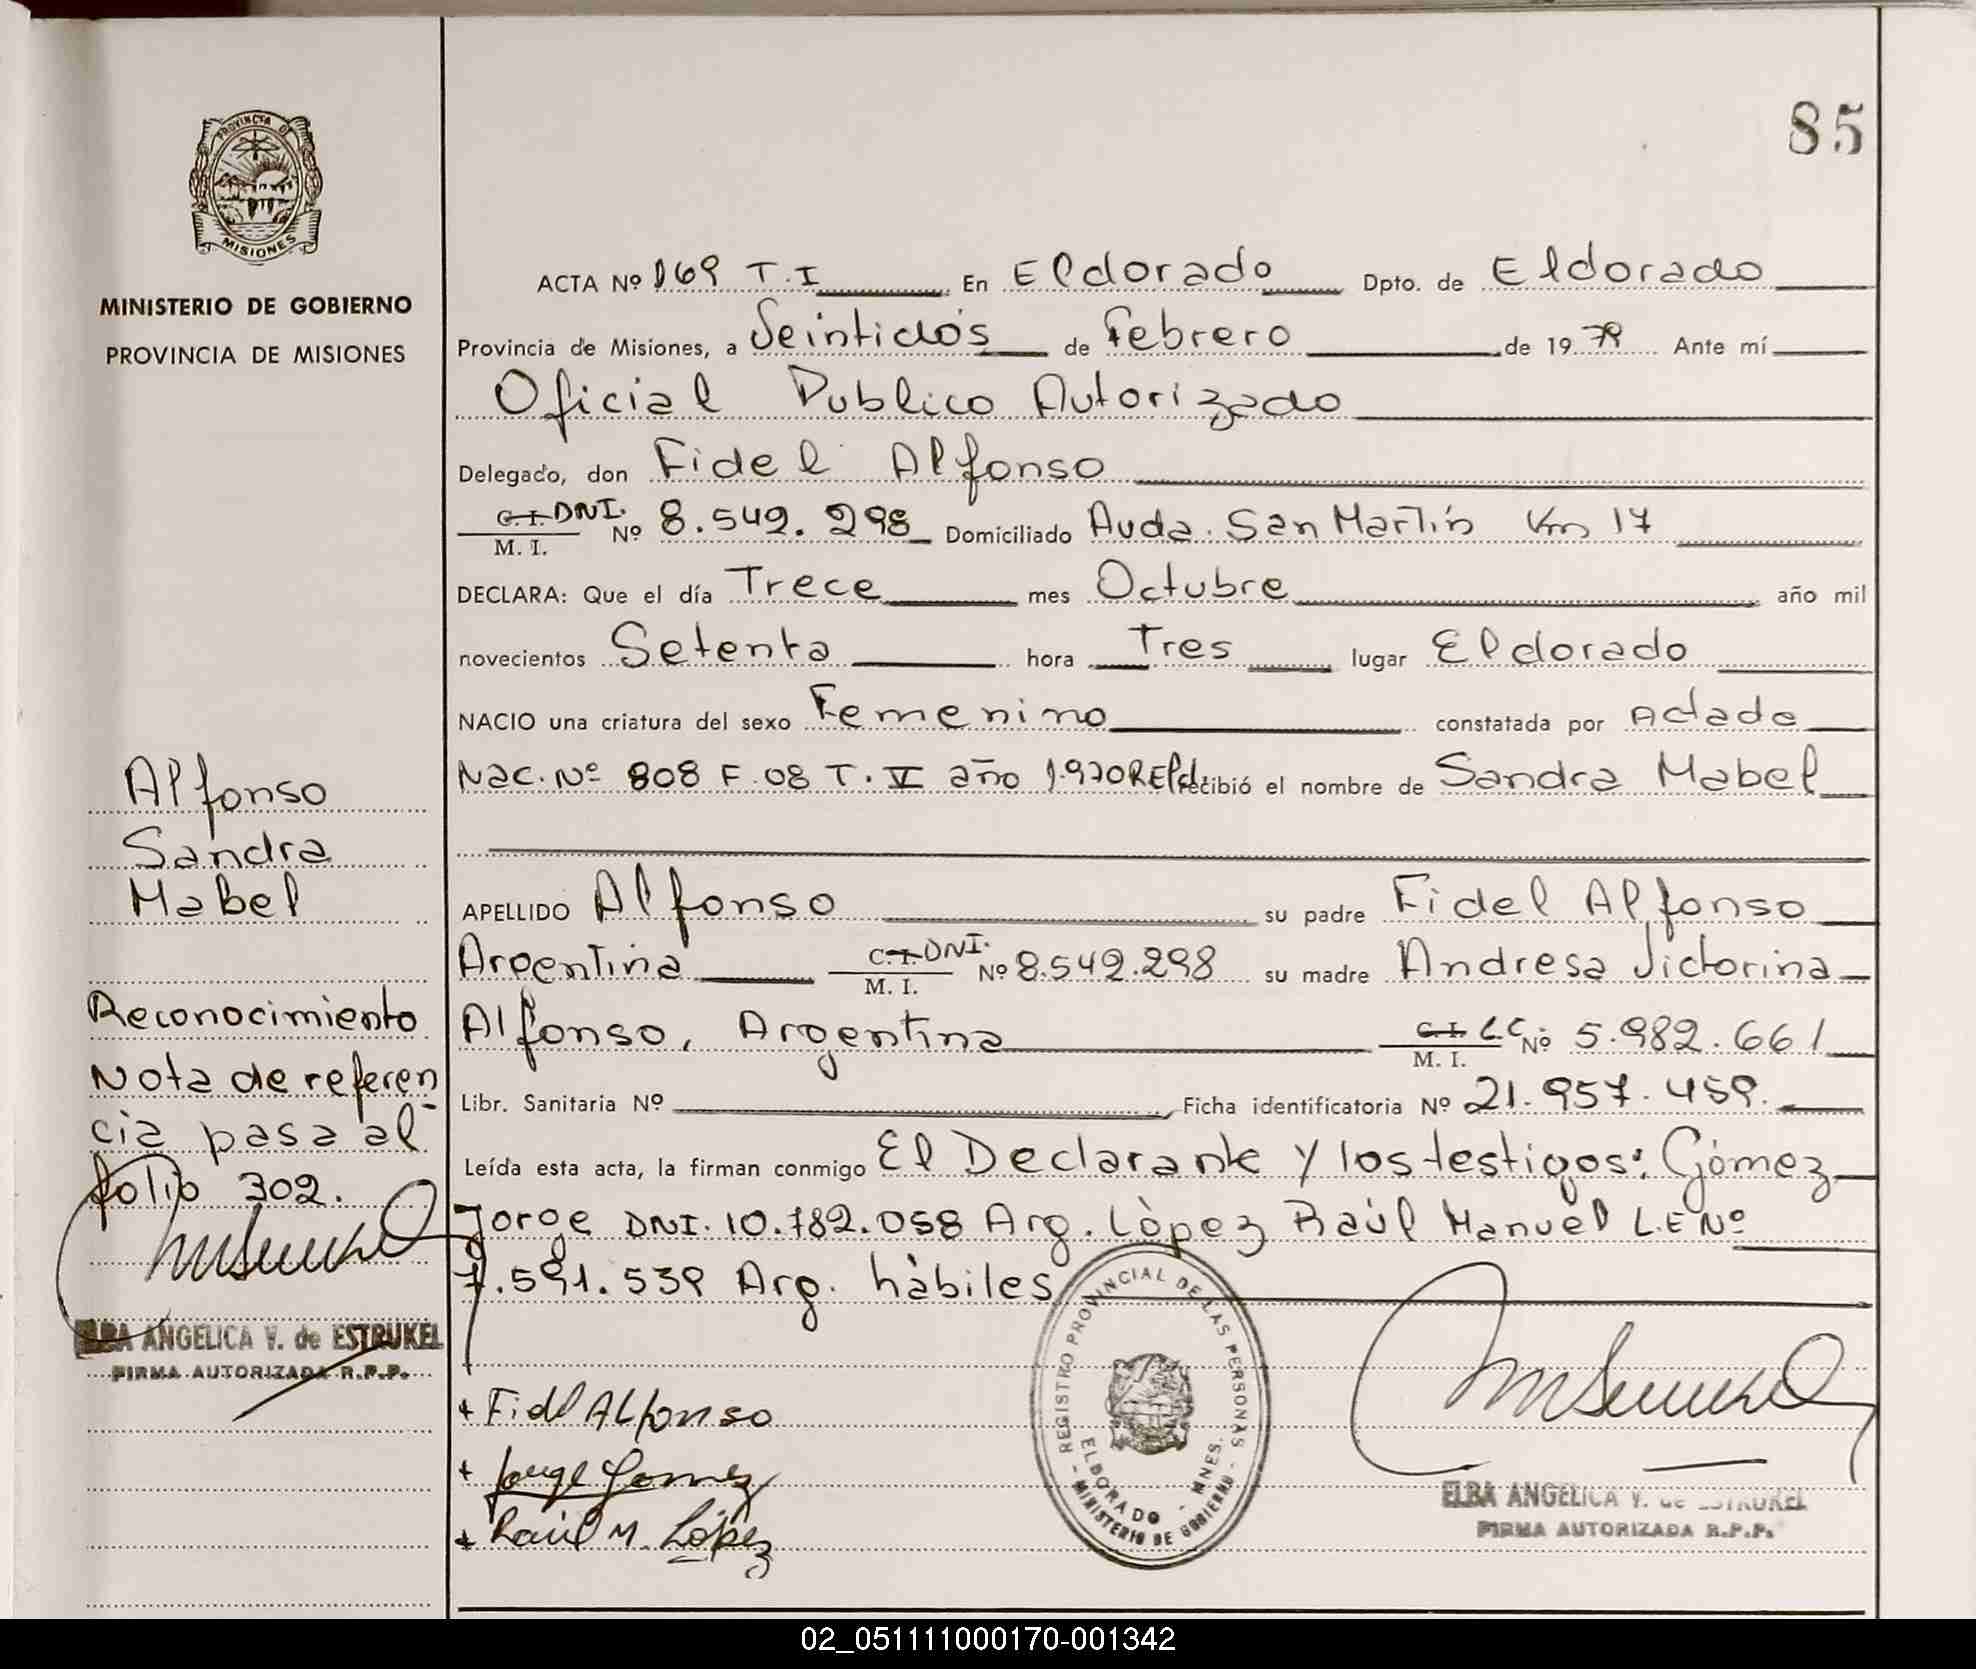 85
PROVINCIA DE
MISIONES
MINISTERIO DE GOBIERNO
PROVINCIA DE MISIONES
ACTA Nº 169 T.I En Eldorado Dpto. de Eldorado
Provincia de Misiones, a Veintidós de Febrero de 1979 Ante mí
Oficial Publico Autorizado
Delegado, don Fidel Alfonso
C.I. DNI. M. I. Nº 8.542.298 Domiciliado Avda. San Martín Km 17
DECLARA: Que el día Trece mes Octubre año mil
novecientos Setenta hora Tres lugar Eldorado
NACIO una criatura del sexo Femenino constatada por Actade
Nac. Nº 808 F.08 T.V año 1.970 R Eld. recibió el nombre de Sandra Mabel
APELLIDO Alfonso su padre Fidel Alfonso
Argentina C.I. DNI. M. I. Nº 8.542.298 su madre Andresa Victorina
Alfonso, Argentina C.I. L.C. M. I. Nº 5.982.661
Libr. Sanitaria Nº Ficha identificatoria Nº 21.957.459.
Leída esta acta, la firman conmigo El Declarante y los testigos: Gómez
Jorge DNI. 10.782.058 Arg. López Raúl Manuel L.E Nº
7.591.539 Arg. hábiles
Alfonso
Sandra
Mabel
Reconocimiento
Nota de referen
cia pasa al
folio 302.
ELBA ANGELICA V. de ESTRUKEL
FIRMA AUTORIZADA R.P.P.
+ Fidel Alfonso
+ Jorge Gomez
+ Raúl M. López
- REGISTRO PROVINCIAL DE LAS PERSONAS -
ELDORADO - MNES.
MINISTERIO DE GOBIERNO
ELBA ANGELICA V. de ESTRUKEL
FIRMA AUTORIZADA R.P.P.
02_051111000170-001342